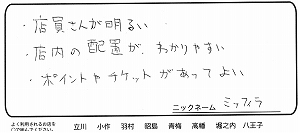 ・店員さんが明るい
・店内の配置が、わかりやすい
・ポイントやチケットがあってよい
ニックネーム ミッフィラ
よく利用されるお店を
○で囲んでください。 立川 小作 羽村 昭島 青梅 高幡 堀之内 八王子